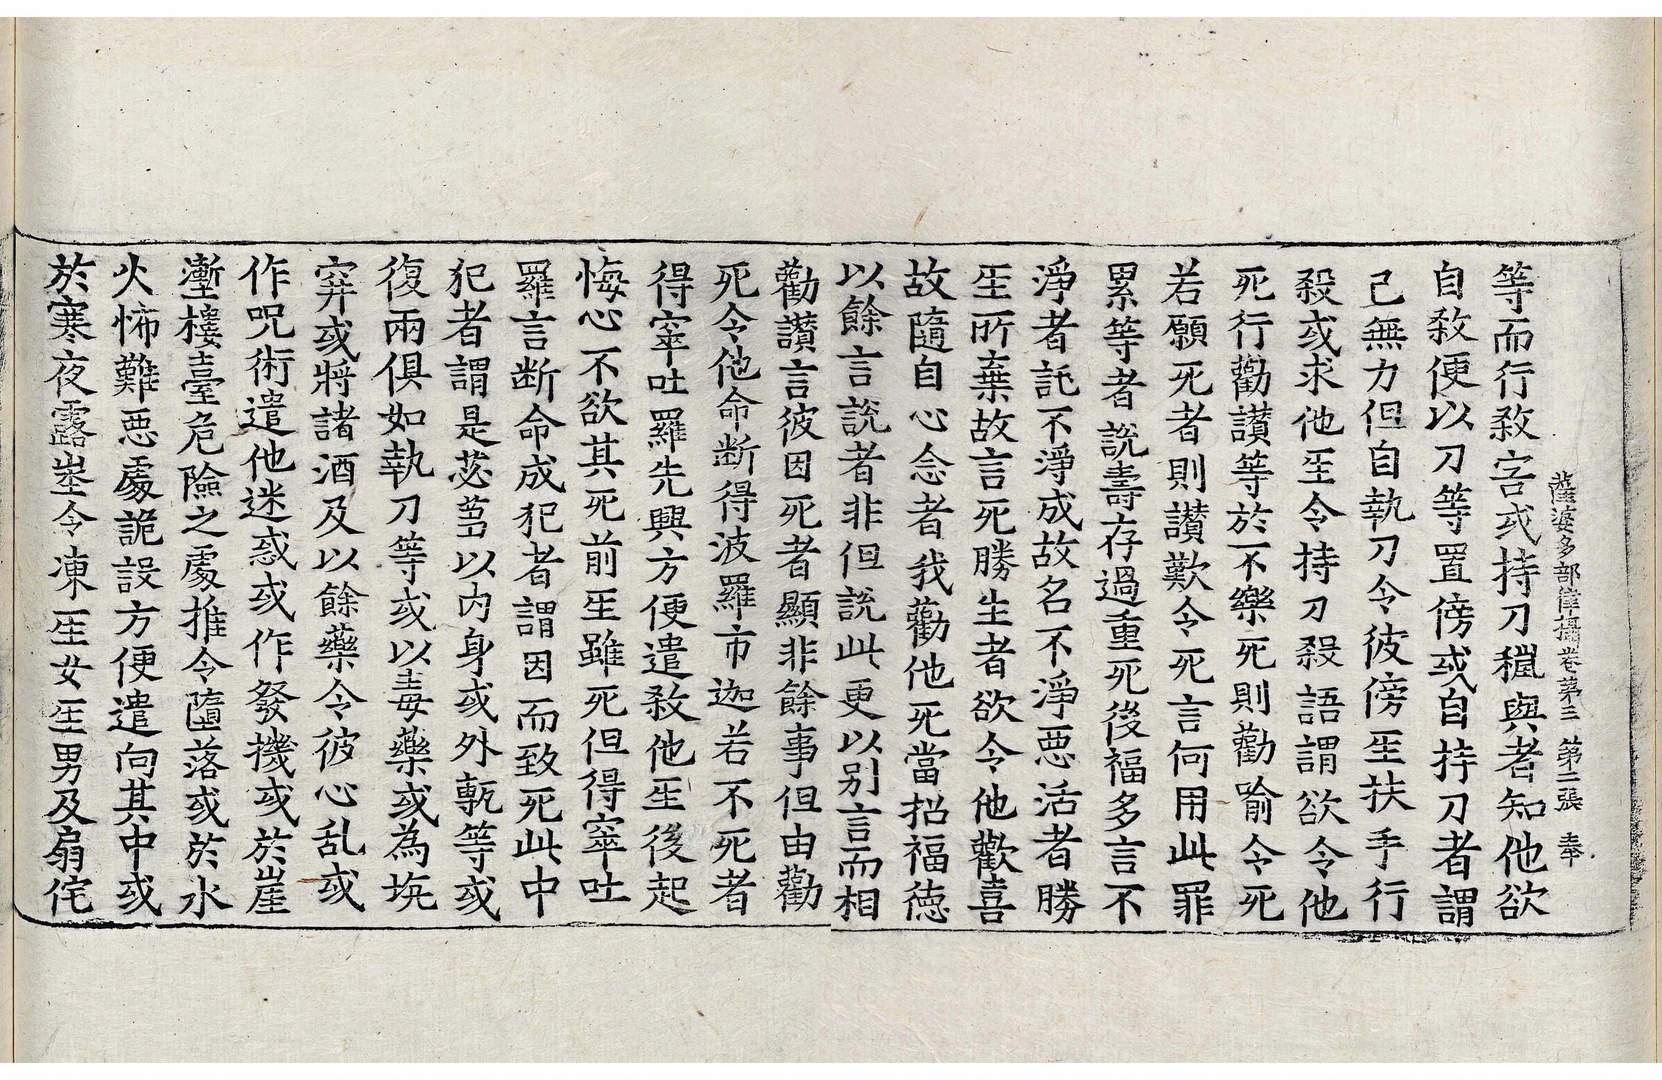 薩婆多部律攝卷第三 第二張 奉
等而行敎害或持刀矟與者知他欲
自敎便以刀等置傍或自持刀者謂
己無力但自執刀令彼傍𤯔扶手行
殺或求他𤯔令持刀殺語謂欲令他
死行勸讃等於不樂死則勸喻令死
若願死者則讃歎令死言何用此罪
累等者說壽存過重死後福多言不
淨者訖不淨成故名不淨惡活者勝
𤯔所棄故言死勝生者欲令他歡喜
故隨自心念者我勸他死當招福徳
以餘言說者非但說此更以别言而相
勸讃言彼因死者顯非餘事但由勸
死令他命断得波羅市迦若不死者
得窣吐羅先興方便遣敎他𤯔後起
悔心不欲其死前𤯔雖死但得窣吐
羅言断命成犯者謂因而致死此中
犯者謂是苾蒭以内身或外甎等或
復兩俱如執刀等或以毒藥或為坑
穽或將諸酒及以餘藥令彼心乱或
作呪術遣他迷惑或作發機或於崖
壍樓臺危險之處推令墮落或於水
火怖難惡處詭設方便遣向其中或
於寒夜露坐令凍𤯔女𤯔男及扇侘